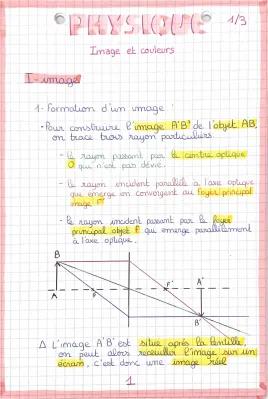 PHYSIQUE
1/3
Image et couleurs
I - image
1 - Formation d'un image :
- Pour construire l'image A'B' de l'objet AB,
on trace trois rayon particuliers.
- le rayon passant par le centre optique
O qui n'est pas dévié.
- le rayon incident parallèle à l'axe optique
que émerge en convergent au foyer principal
image F'
- le rayon incident passant par le foyer
principal objet F qui émerge parallèlement
à l'axe optique.
B
A
F
F'
A'
B'
Δ L'image A'B' est située après la lentille,
on peut alors recueillir l'image sur un
écran, c'est donc une image réel
1